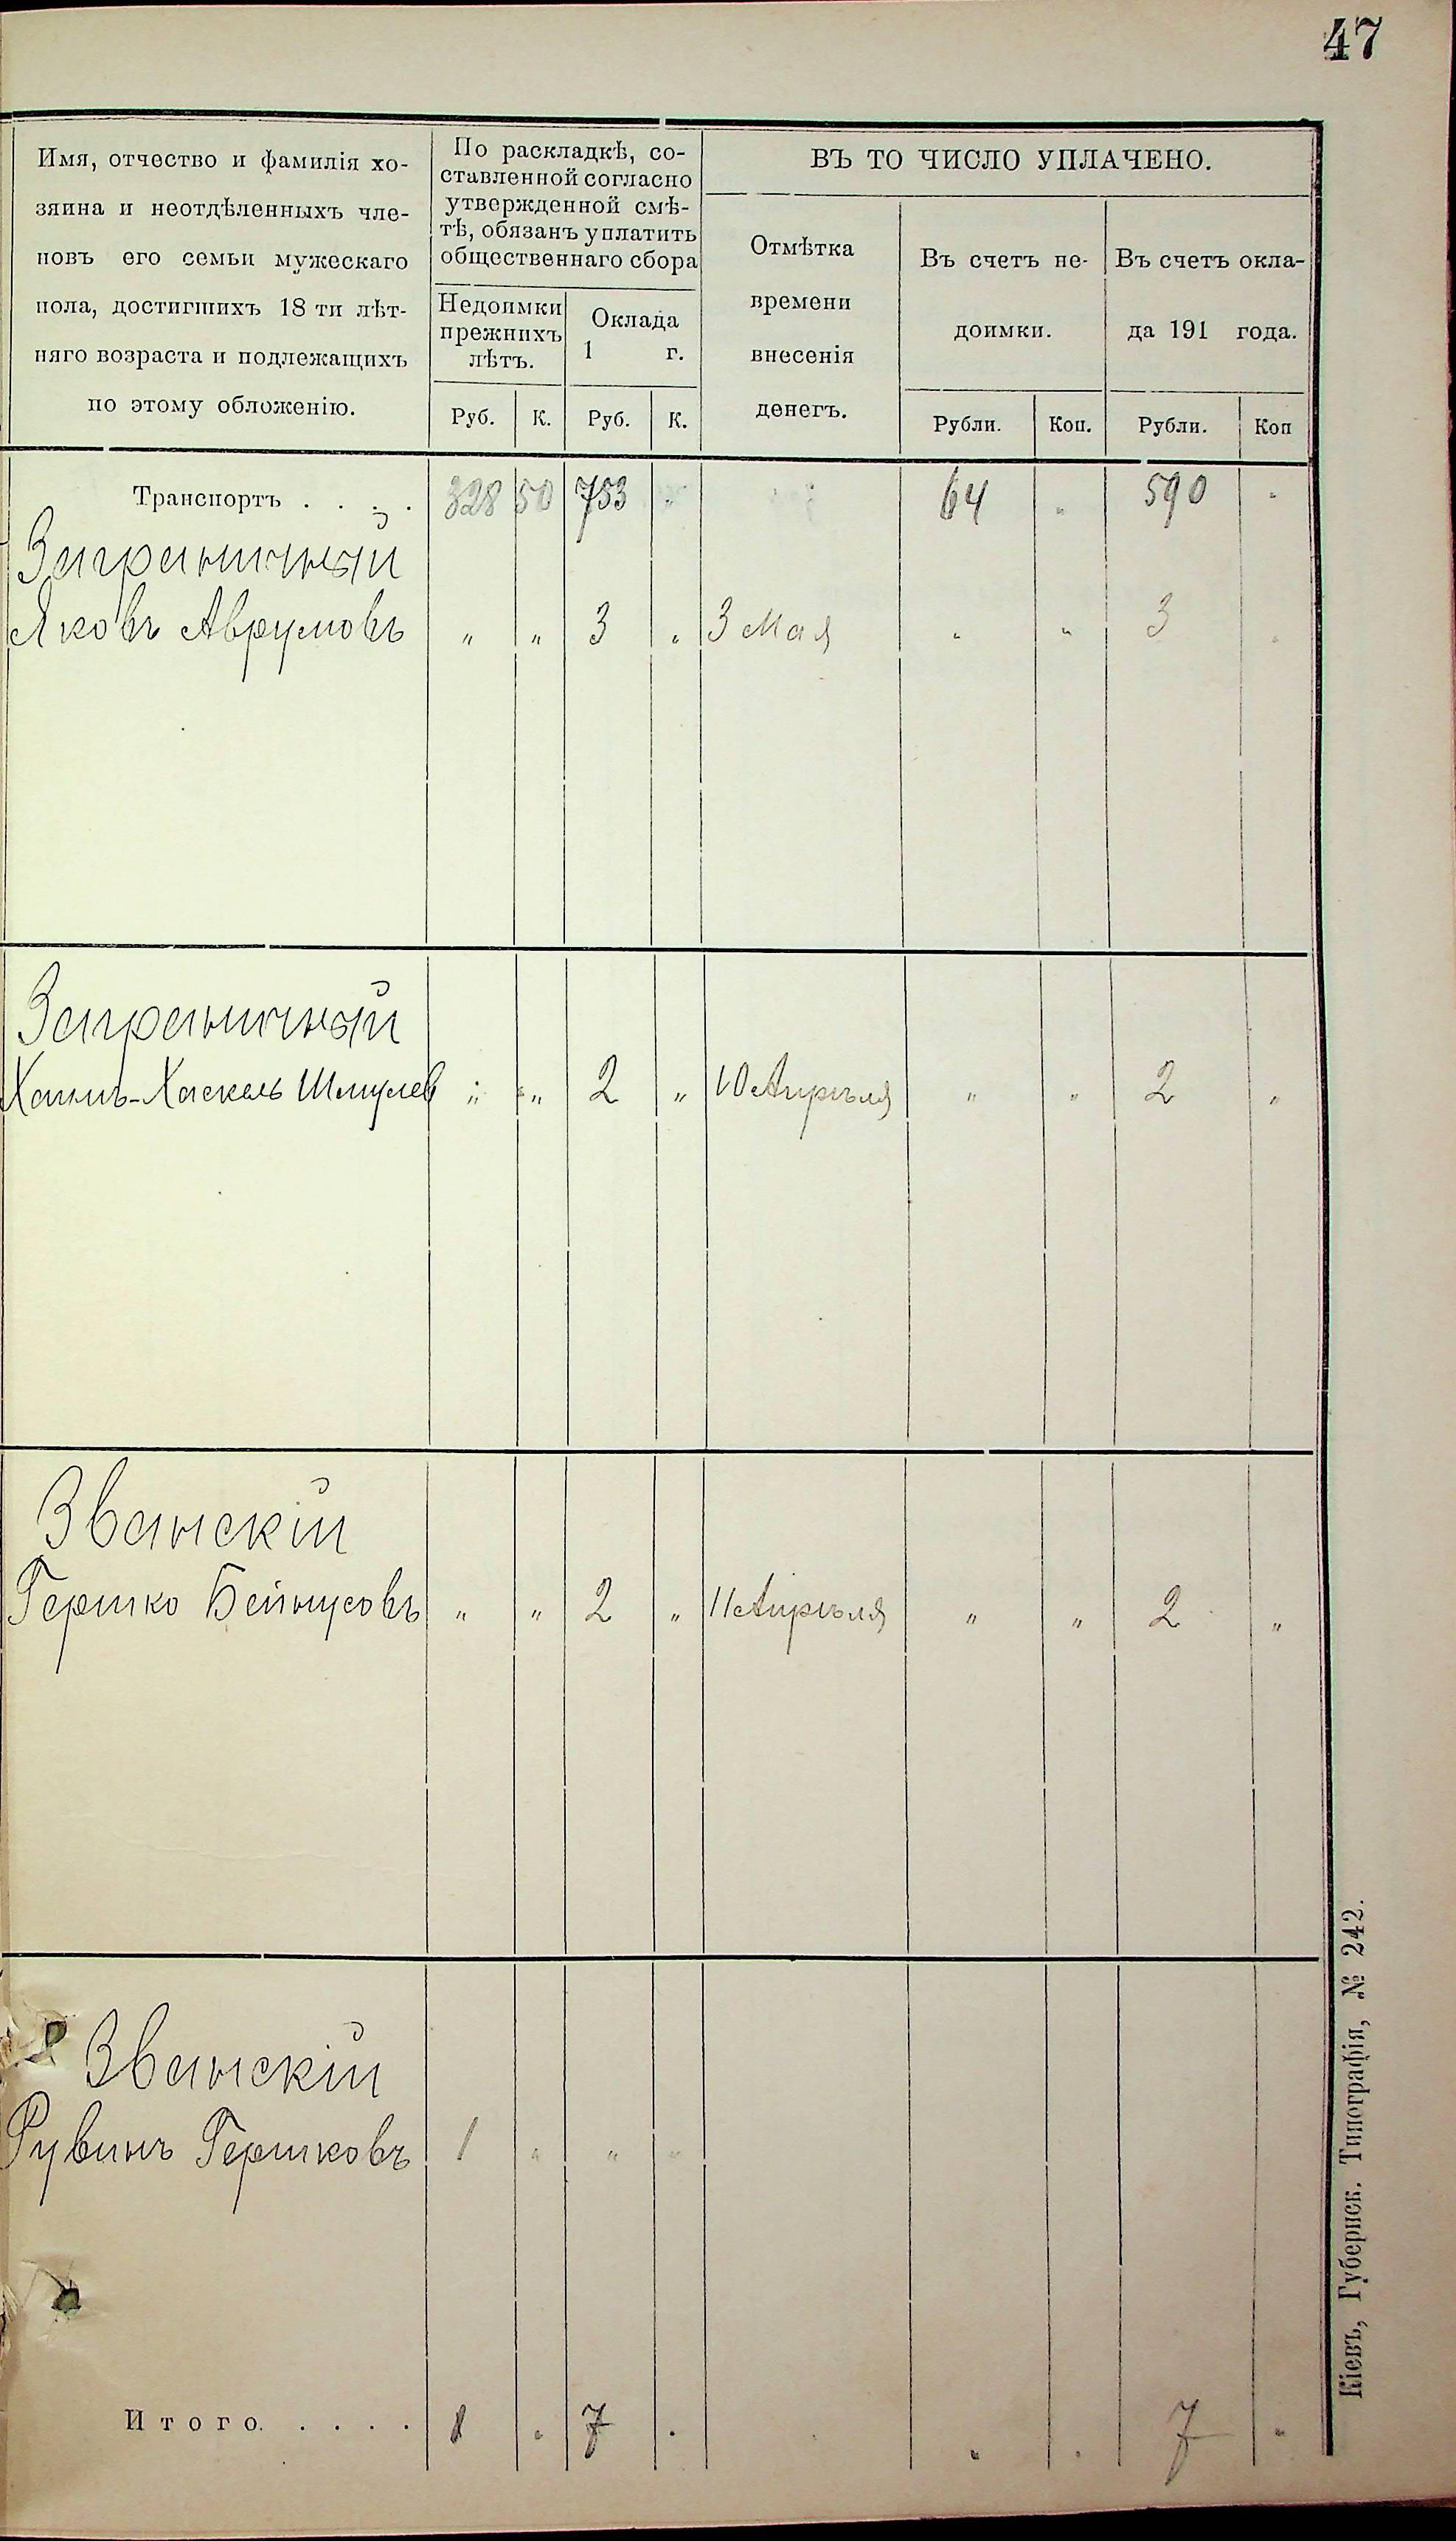 47
Имя, отчество и фамилія хо-
зяина и неотдѣленныхъ чле-
новъ его семьи мужескаго
пола, достигшихъ 18 ти лѣт-
няго возраста и подлежащихъ
по этому обложенію.
По раскладкѣ, со-
ставленной согласно
утвержденной смѣ-
тѣ, обязанъ уплатить
общественнаго сбора
Недоимки
прежнихъ
лѣтъ.
Оклада
1 г.
Руб. К. Руб. К.
ВЪ ТО ЧИСЛО УПЛАЧЕНО.
Отмѣтка
времени
внесенія
денегъ.
Въ счетъ не-
доимки.
Въ счетъ окла-
да 191 года.
Рубли. Коп. Рубли. Коп
Транспортъ . . . . 328 50 753 „ 64 „ 590 „
Заграничный
Яковъ Аврумовъ „ „ 3 „ 3 Мая „ „ 3 „
Заграничный
Хаимъ-Хаскель Шмулев „ „ 2 „ 10 Апрѣля „ „ 2 „
Званскій
Гершко Бейнусовъ „ „ 2 „ 11 Апрѣля „ „ 2 „
Званскій
Рувинъ Гершковъ 1 „ „ „
Итого. . . . . 1 „ 7 „ „ „ 7 „
Кіевъ, Губернск. Типографія, № 242.